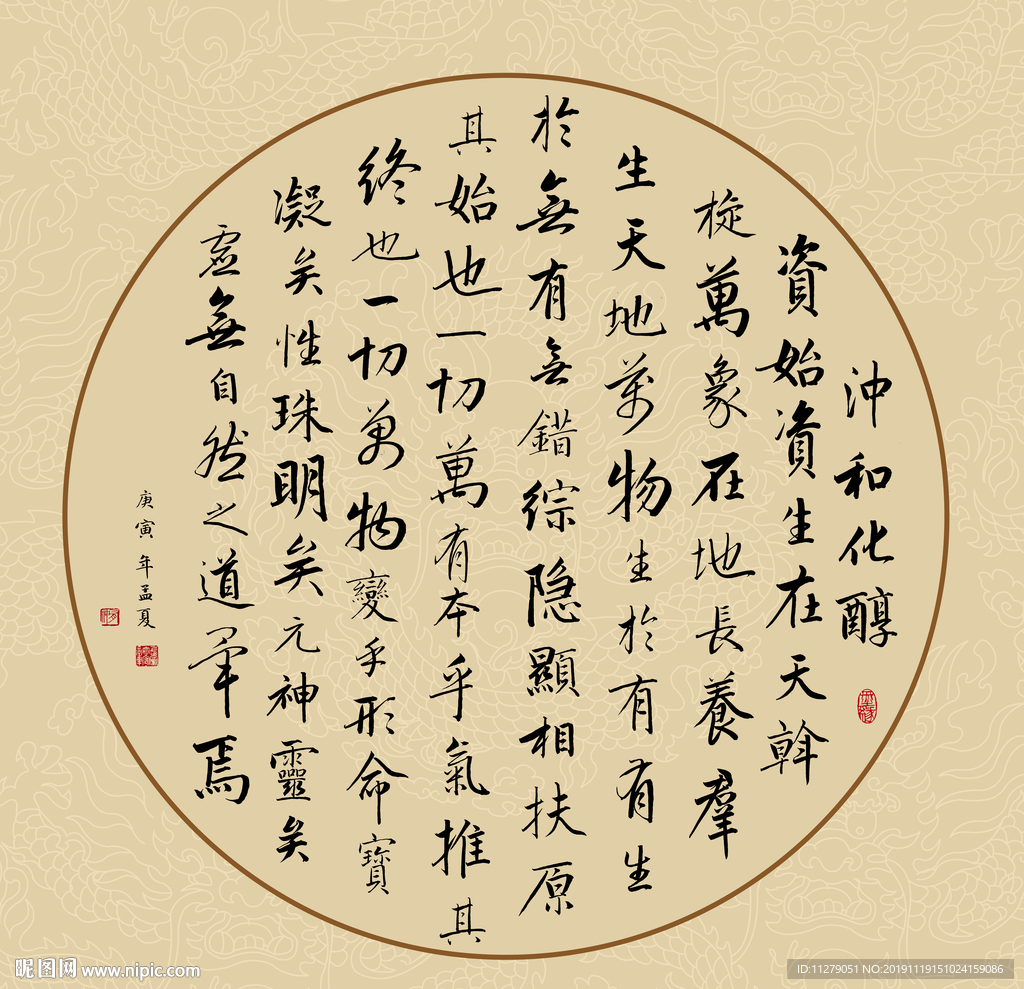 沖和化醇
資始資生在天斡
旋萬象在地長養羣
生天地萬物生於有有生
於無有無錯綜隐顯相扶原
其始也一切萬有本乎氣推其
終也一切万物變乎形命寶
凝矣性珠明矣元神靈矣
虛無自然之道畢焉
庚寅年孟夏
昵图网 www.nipic.com
ID:11279051 NO:20191119151024159086